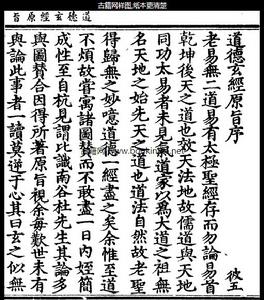 古籍网样图,纸本更清楚
道德玄經原旨
道德玄經原旨序 彼五
老易無二道易有太極聖經存而勿論易首
乾坤後天之道也效天法地故儒道與天地
同功太易者未見氣道家以為大道之祖無
名天地之始先天之道也道法自然故老聖
得歸無之妙噫道德一經盡之矣余惟至道
不煩故嘗寓諸圖贊而不敢盡一日內姪簡
成性至自杭見謂比識南谷杜先生其論多
與圖贊合因得所著原旨視余每歎世未有
與論此事者一讀莫逆于心其曰玄之似無